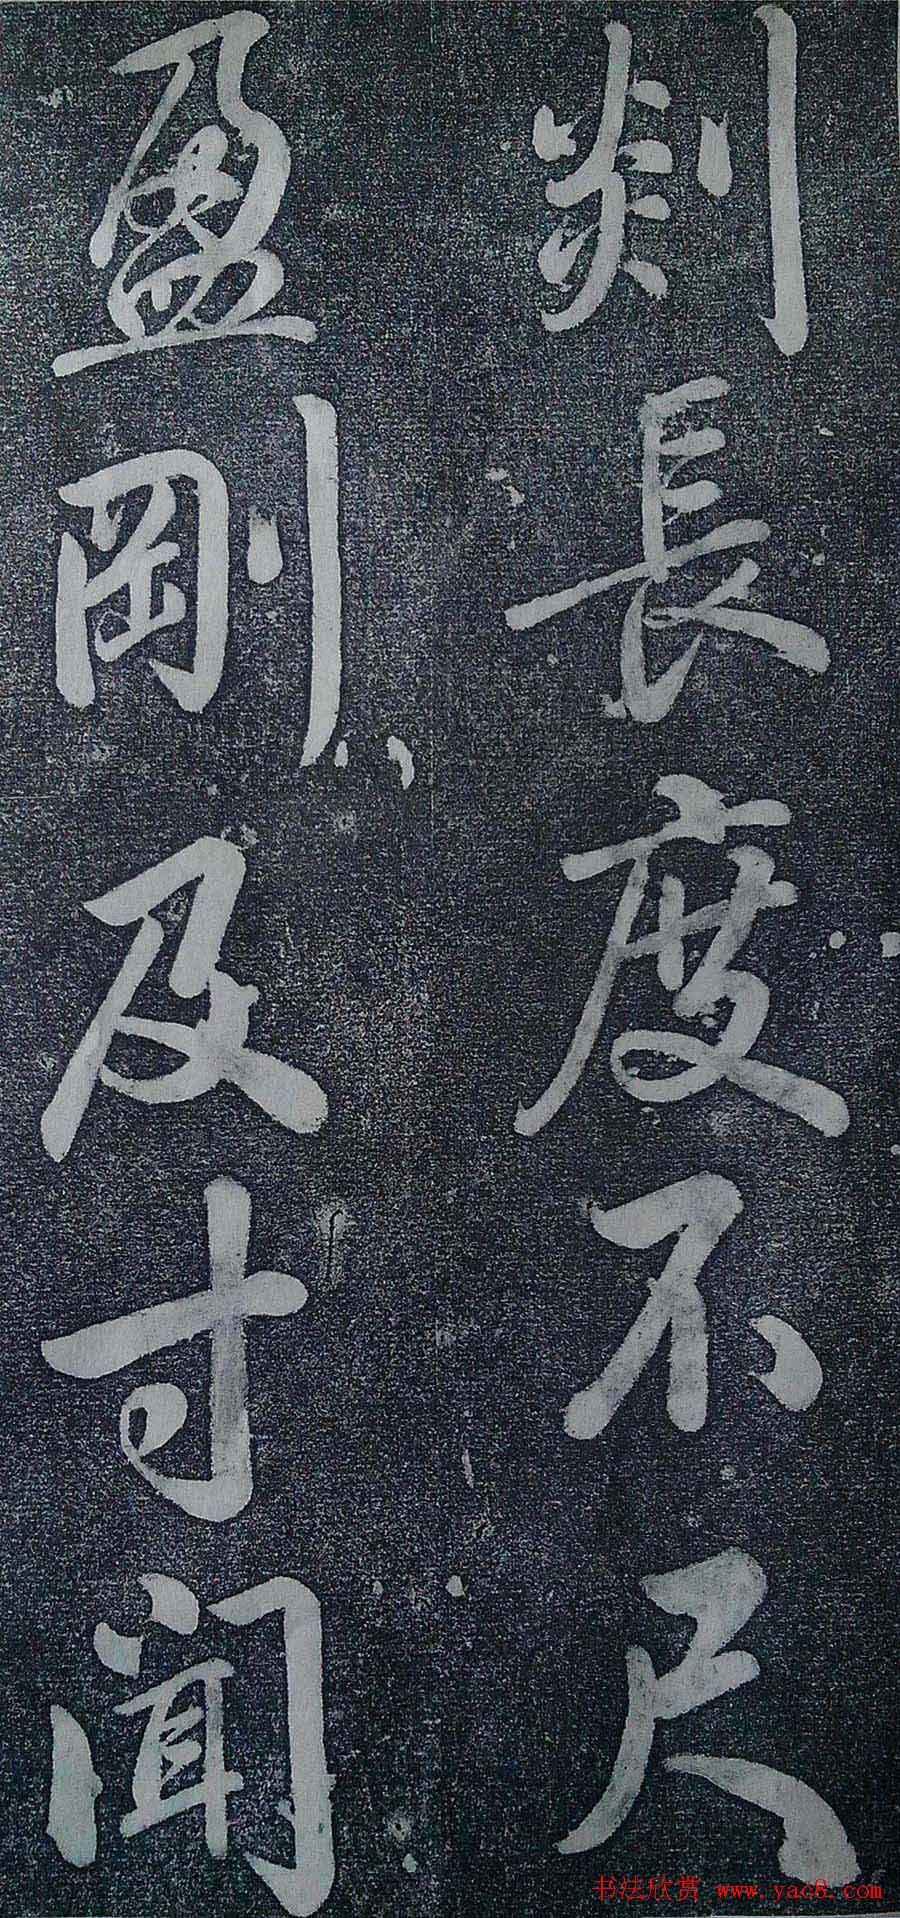 剡長度不尺
盈剛及寸聞
书法欣赏 www.yac8.com